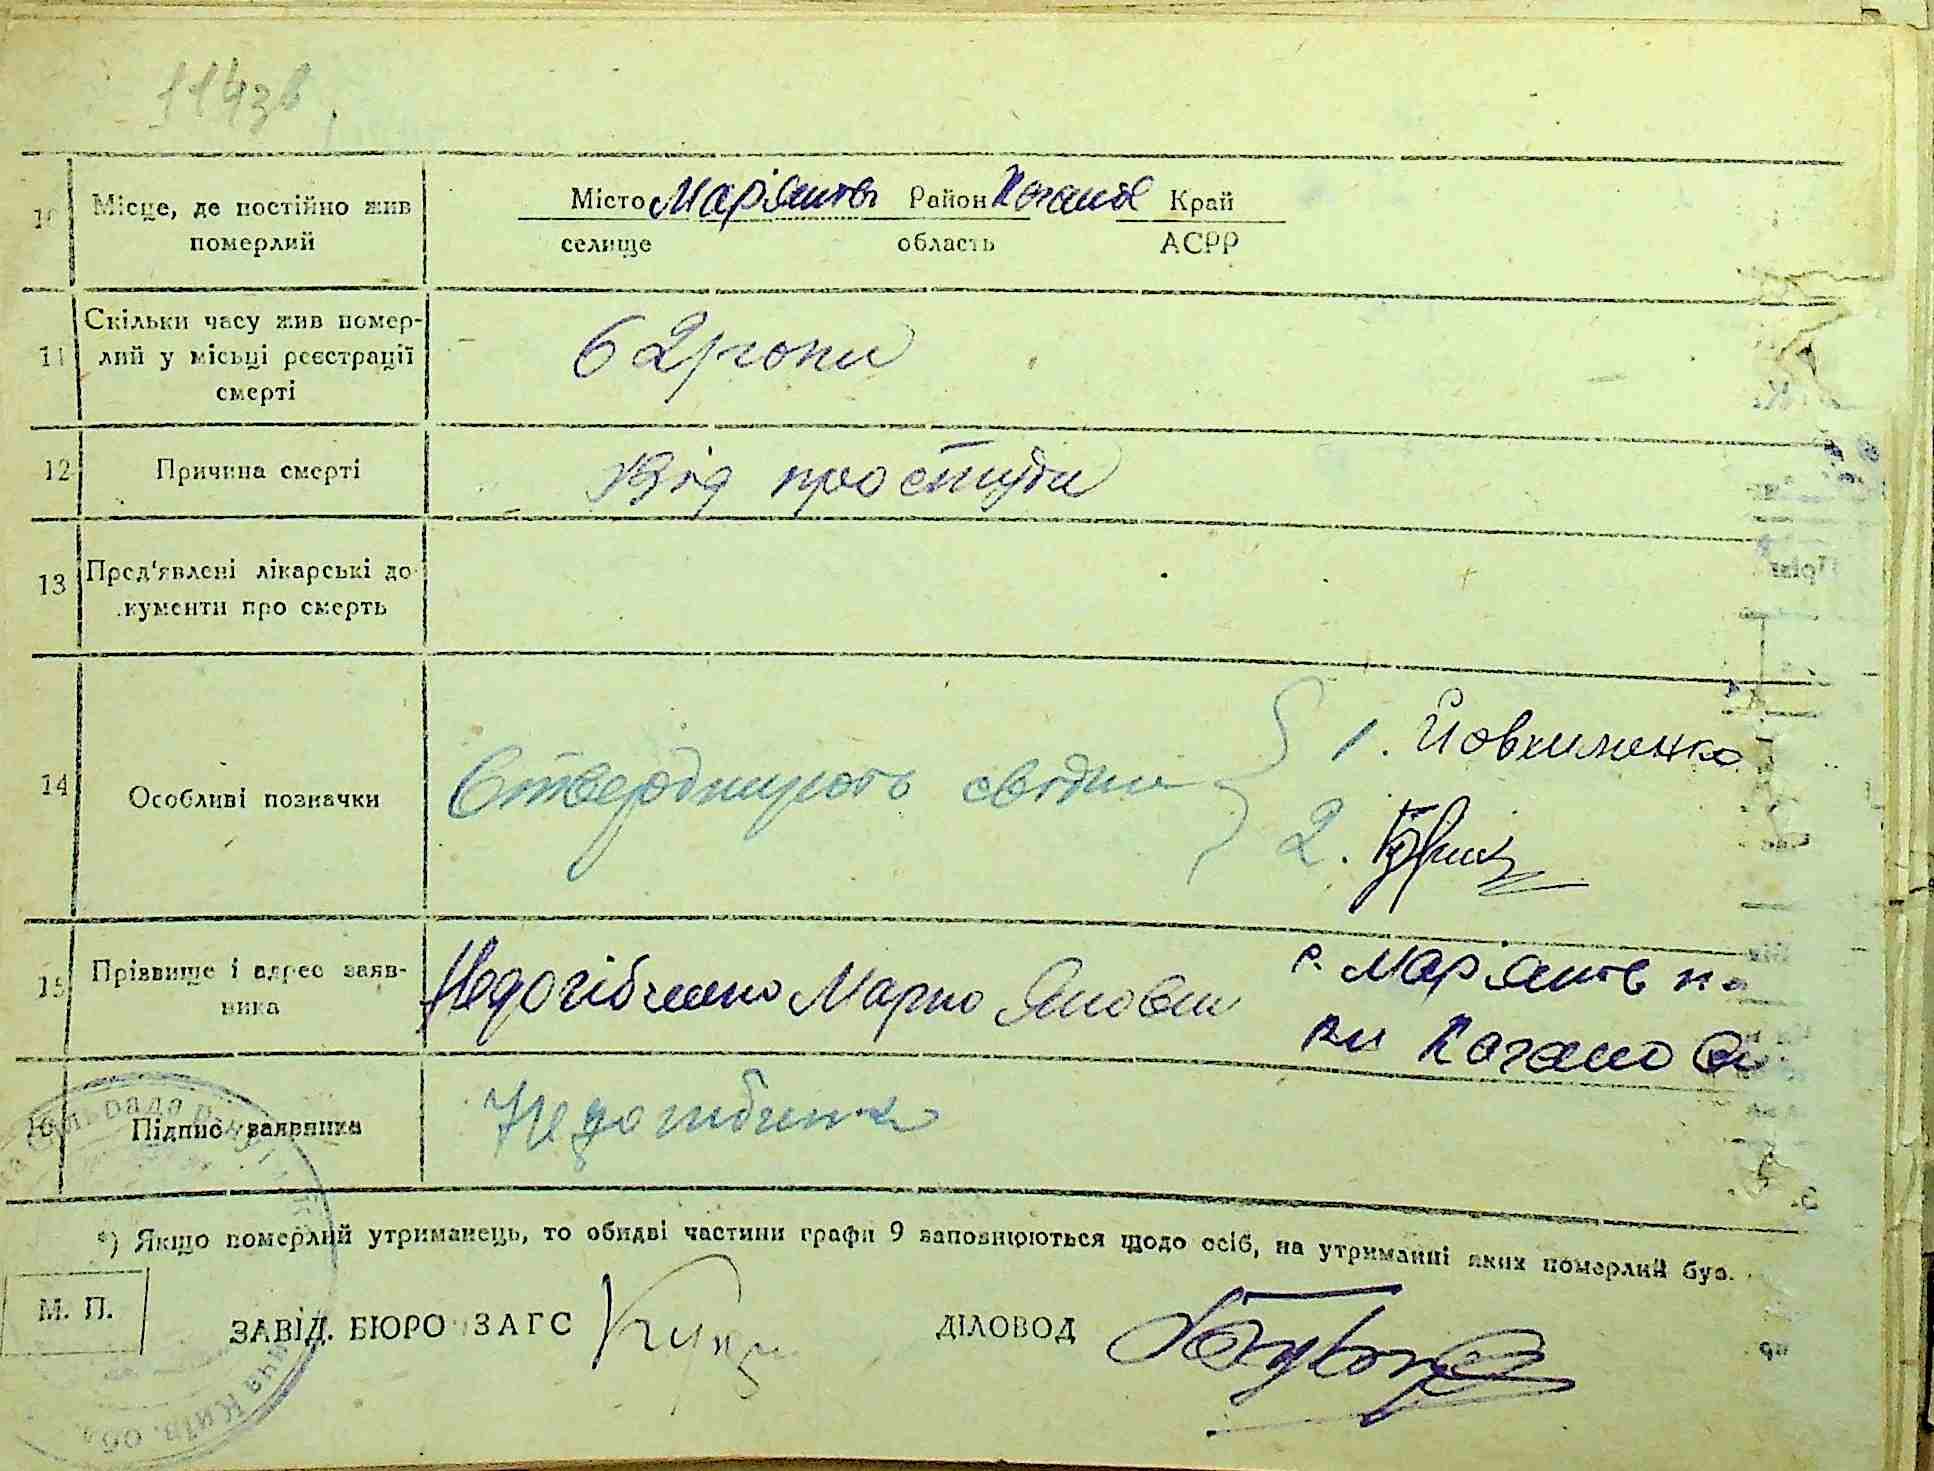 114зв
10 Місце, де постійно жив померлий
Місто Мар'янів Район Кагано Край
селище область АСРР
11 Скільки часу жив помер-
лий у місьці реєстрації
смерті
62 роки
12 Причина смерті
Від простуди
13 Пред'явлені лікарські до-
кументи про смерть
14 Особливі позначки
Стверджують свідки
1. Йовхименко
2.
15 Прізвище і адрес заяв-
ника
Недогібченко Марко Якович
с. Мар'янівка
Кагано
16 Підпис заявника
Недогибченко
*) Якщо померлий утриманець, то обидві частини графи 9 заповнюються щодо осіб, на утриманні яких померлий був.
М. П.
ЗАВІД. БЮРО ЗАГС
ДІЛОВОД
сільрада
Київ. обл.